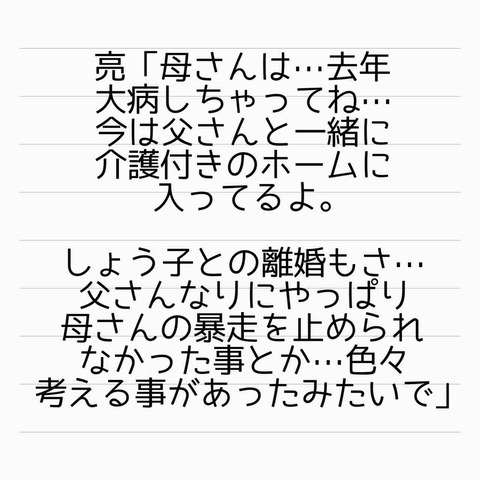 亮「母さんは…去年
大病しちゃってね…
今は父さんと一緒に
介護付きのホームに
入ってるよ。
しょう子との離婚もさ…
父さんなりにやっぱり
母さんの暴走を止められ
なかった事とか…色々
考える事があったみたいで」